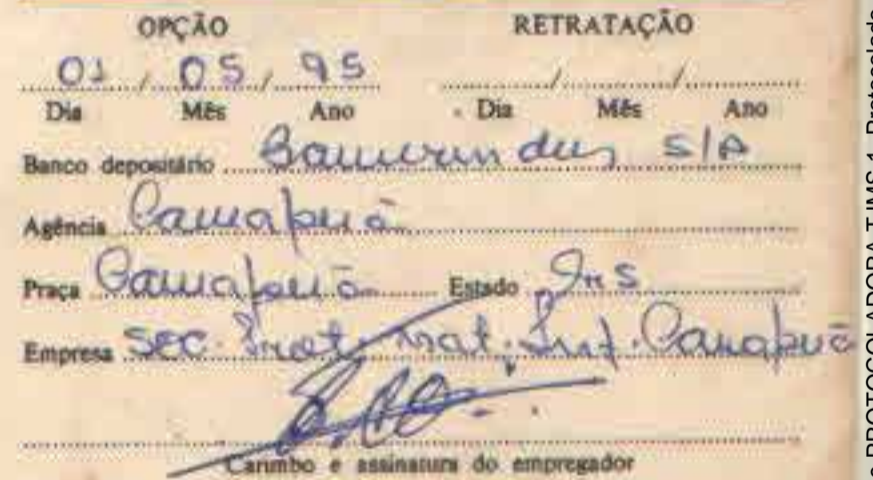 OPÇÃO RETRATAÇÃO
01 / 05 / 95 / /
Dia Mês Ano Dia Mês Ano
Banco depositário Bamerindus S/A
Agência Camapuã
Praça Camapuã Estado MS
Empresa Soc. Prot. Mat. Inf. Camapuã
Carimbo e assinatura do empregador
PROTOCOLADORA TJMS 1. Protocolado